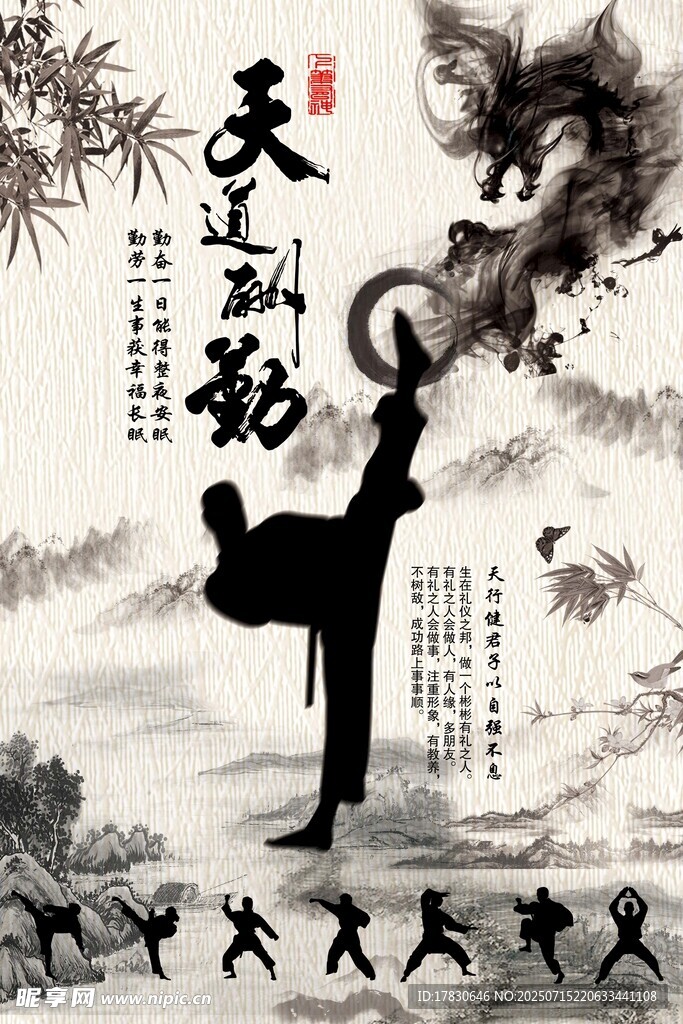 天道酬勤
勤奋一日能得整夜安眠
勤劳一生事获幸福长眠
天行健君子以自强不息
生在礼仪之邦，做一个彬彬有礼之人。
有礼之人会做人，有人缘，多朋友。
有礼之人会做事，注重形象，有教养，
不树敌，成功路上事事顺。
昵享网 www.nipic.cn
ID:17830646 NO:20250715220633441108